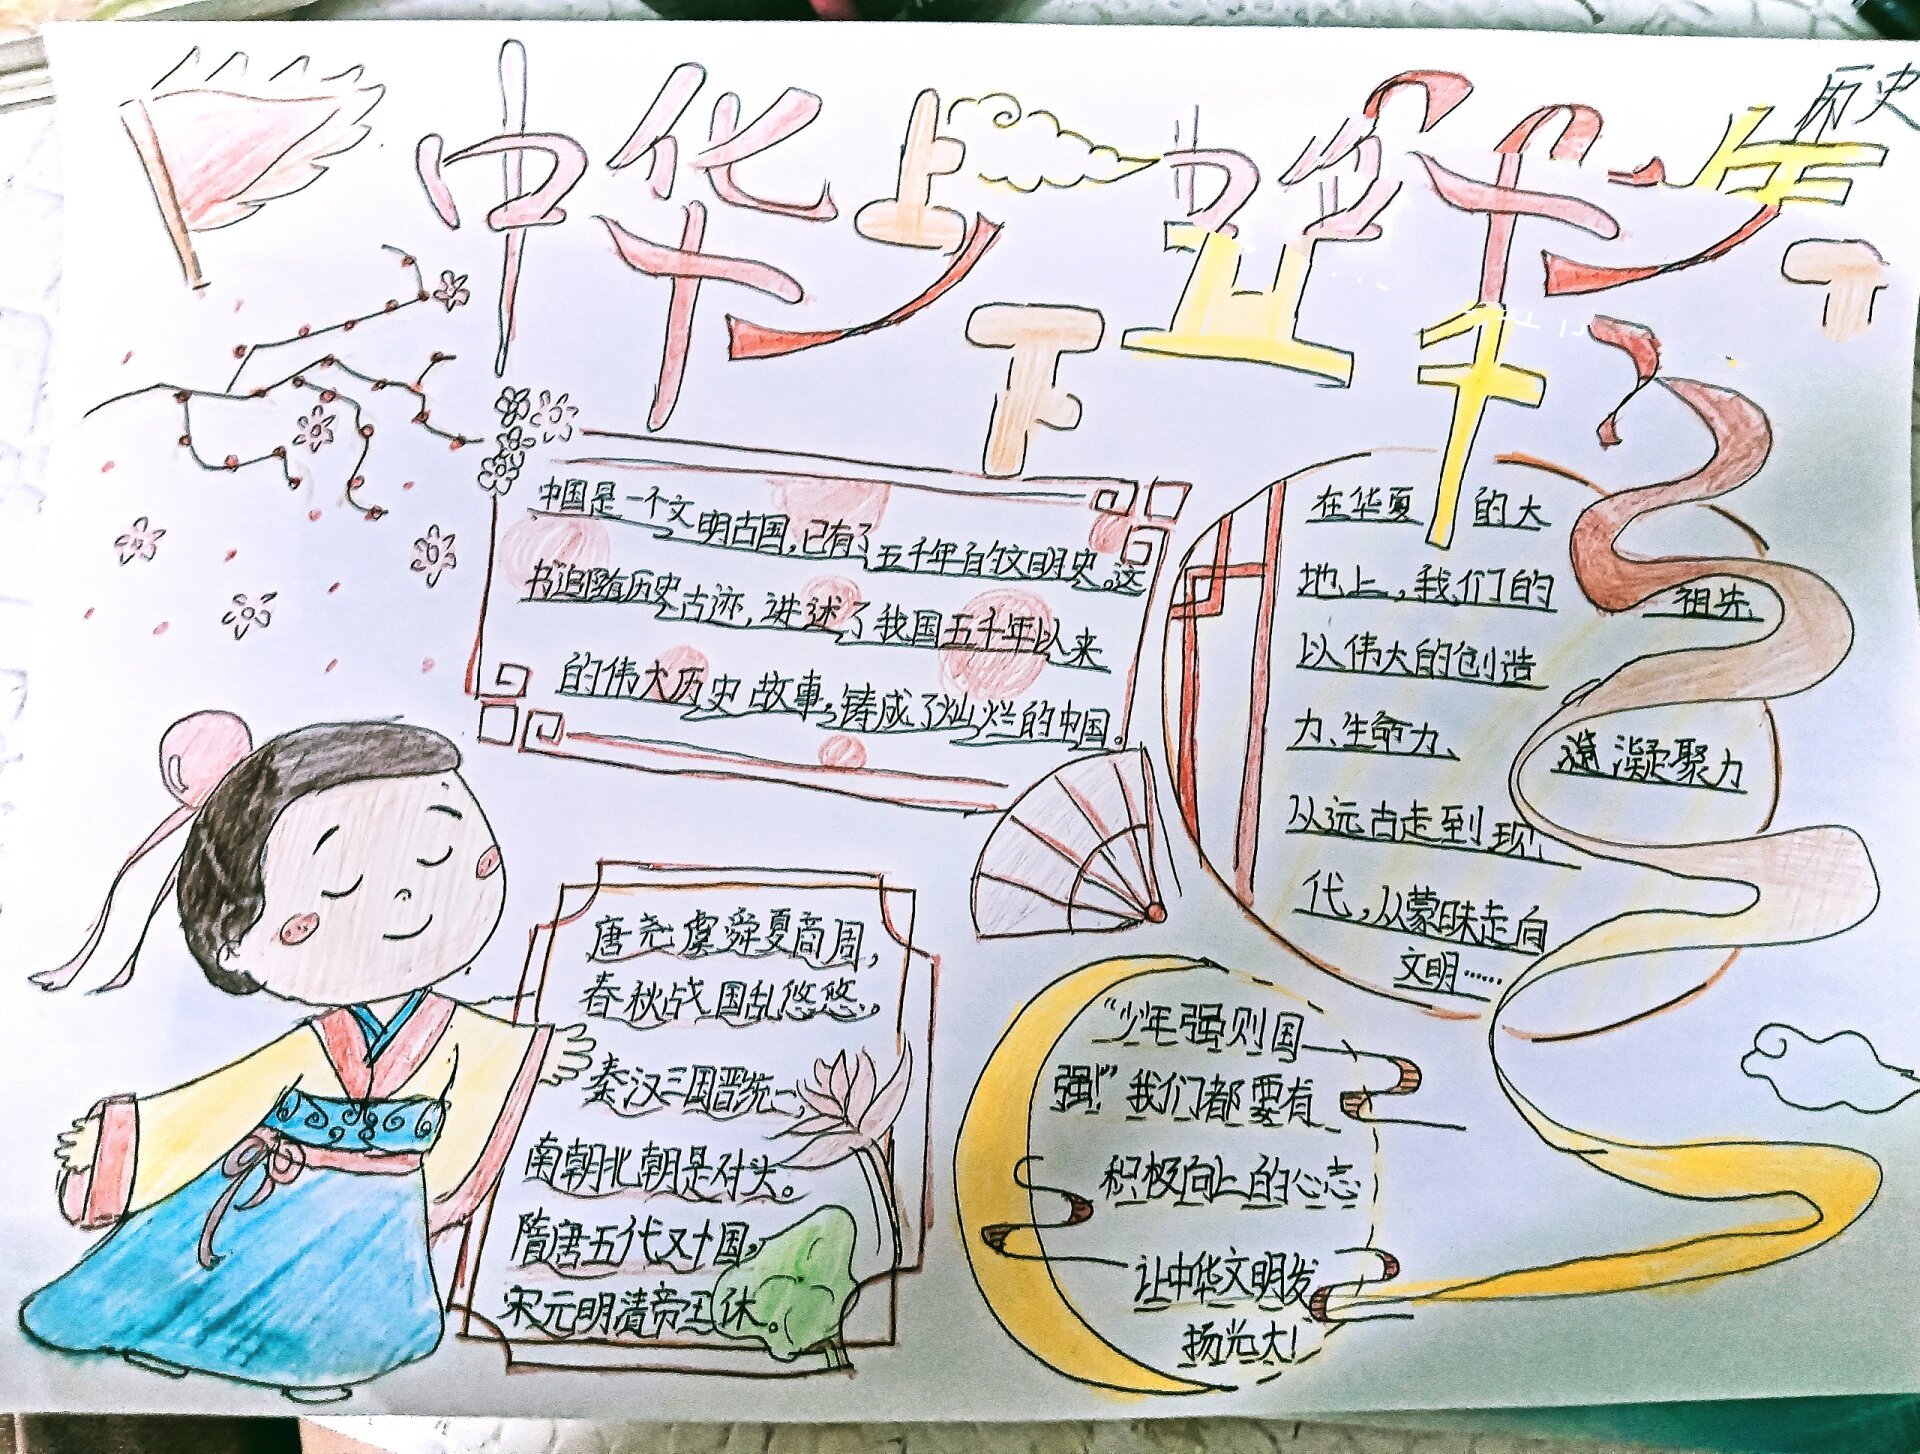 历史
中华上下五千年
中国是一个文明古国,已有了五千年的文明史。这
书追随历史古迹,讲述了我国五千年以来
的伟大历史故事,铸成了灿烂的中国。
在华夏 的大
地上,我们的 祖先
以伟大的创造
力、生命力、 凝聚力
从远古走到现
代,从蒙昧走向
文明……
唐尧虞舜夏商周,
春秋战国乱悠悠。
秦汉三国晋统一,
南朝北朝是对头。
隋唐五代又十国,
宋元明清帝王休。
“少年强则国
强!”我们都要有
积极向上的心志
让中华文明发
扬光大!